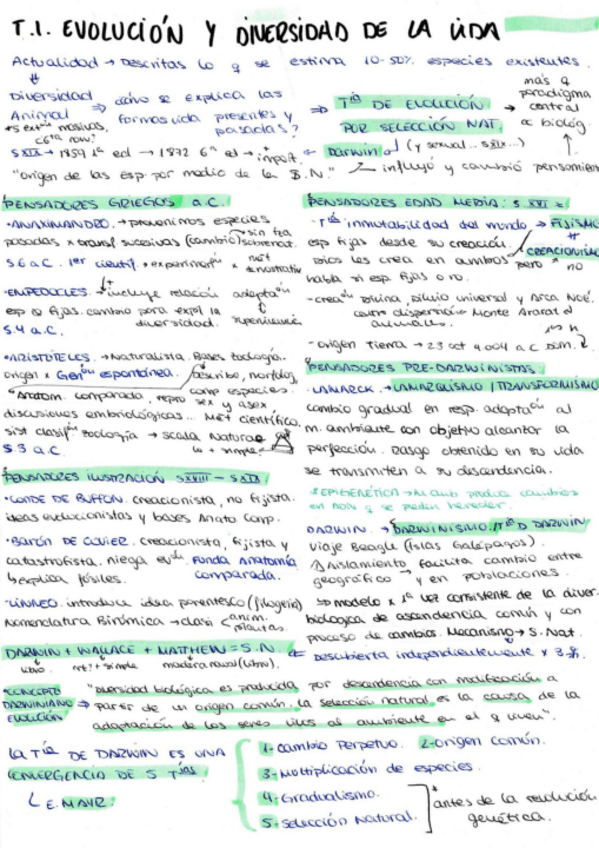 T.1. EVOLUCIÓN Y DIVERSIDAD DE LA VIDA
Actualidad → Descritas lo q se estima 10-50% especies existentes.
Diversidad Animal ⇒ cómo se explica las formas vida presentes y pasadas? ⇒ Tía DE EVOLUCIÓN POR SELECCIÓN NAT. → más q paradigma central
*5 extin masivas,
SXIX → 1859 1ª ed → 1872 6ª ed → import. Darwin (y sexual... SXIX...)
"origen de las esp. por medio de la S.N." influyó y cambió pensamien
PENSADORES GRIEGOS a.C.
·ANAXIMANDRO. → provenimos especies
pasadas x transf sucesivas (cambio) sin
S.6 a.C. 1er científ.
·EMPEDOCLES. → incluye relación adapta
esp a fijas. cambio para expl la
diversidad. supervivencia
S.4 a.C.
·ARISTÓTELES. → Naturalista. Bases zoología.
origen x Genón espontánea. describe, morfolog,
comp especies.
"Anatom. comparada, repro sex y asex
discusiones embriológicas... Mét científico,
sist clasif zoología → scala Naturae
S.3 a.C.
PENSADORES EDAD MEDIA: S.XVI
- Tía inmutabilidad del mundo → FIJISMO
esp fijas desde su creación. CREACIONISMO
Dios les crea en ambos pero * no
habla si esp fijas o no.
- creaón Divina, Diluvio universal y Arca Noé.
centro dispersión Monte Ararat
animales.
- origen Tierra → 23 oct 4.004 a.C
PENSADORES PRE-DARWINISTAS:
·LAMARCK. → LAMARQUISMO / TRANSFORMISMO
cambio gradual en resp. adaptaón al
m. ambiente con objetivo alcanzar la
perfección. Rasgo obtenido en su vida
se transmiten a su descendencia.
*EPIGENÉTICA → M.amb produce cambios
en ADN q se pueden heredar.
PENSADORES ILUSTRACIÓN SXVIII - SXIX:
·CONDE DE BUFFON. creacionista, no fijista.
ideas evolucionistas y bases Anato Comp.
·BARÓN DE CUVIER. creacionista, fijista y
catastrofista, niega evoln. Funda Anatomía
comparada.
↳ explica fósiles.
·LINNEO. introduce idea parentesco (filogenia)
Nomenclatura Binómica → clasi < anim. plantas.
DARWIN. → DARWINISMO / Tía D DARWIN
Viaje Beagle (Islas Galápagos).
Aislamiento geográfico → facilita cambio entre y en poblaciones
⇒ modelo x 1ª vez consistente de la diver.
biológica de ascendencia común y con
proceso de cambios. Mecanismo → S. Nat.
DARWIN + WALLACE + MATTHEW = S.N. ⇐ Descubierta independientemente x 3
libro. art. + simple madera naval (libro).
*CONCEPTO DARWINIANO EVOLUCIÓN ⇒ "Diversidad biológica es producida por descendencia con modificación a
partir de un origen común. la selección natural es la causa de la
adaptación de los seres vivos al ambiente en el q viven".
LA Tía DE DARWIN ES UNA
CONVERGENCIA DE 5 Tías
↳ E. MAYR:
1- Cambio Perpetuo. 2- Origen común.
3- Multiplicación de especies.
4- Gradualismo.
5- Selección Natural.
*antes de la revolución
genética.